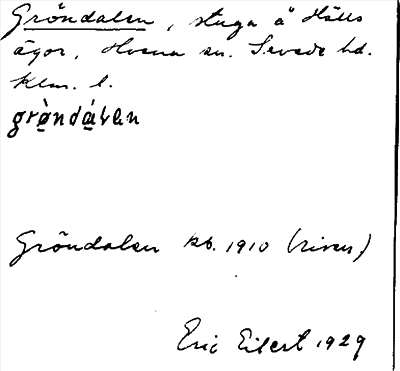 Gröndalen, stuga å Hälls
ägor, Hvena sn. Sevede hd.
Klm. l.
grö̀ndálen
Gröndalen kb. 1910 (riven)
Eric Eilert 1929